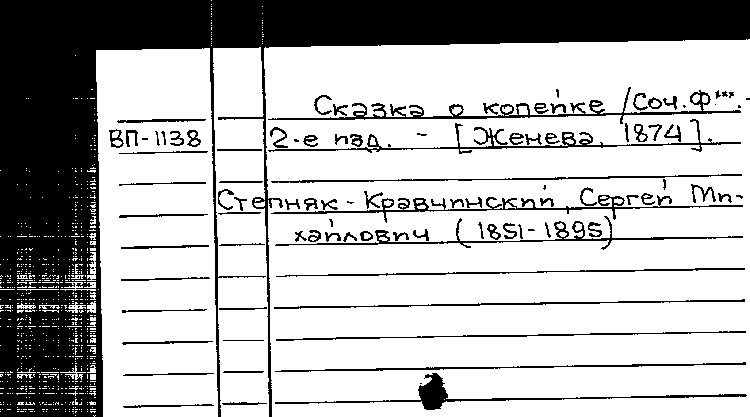 Сказка о копейке / Соч. Ф***. -
ВП-1138 2-е изд. - [Женева, 1874].
Степняк-Кравчинский, Сергей Ми-
хайлович (1851-1895)